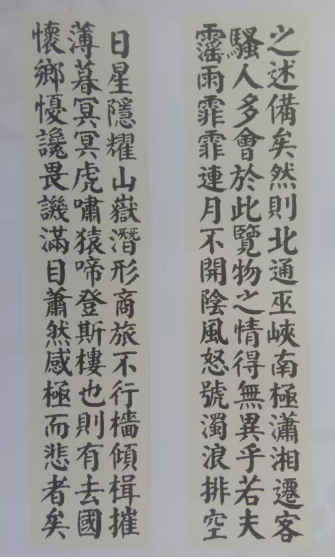 之述備矣然則北通巫峽南極瀟湘遷客
騷人多會於此覽物之情得無異乎若夫
霪雨霏霏連月不開陰風怒號濁浪排空
日星隱耀山嶽潛形商旅不行檣傾楫摧
薄暮冥冥虎嘯猿啼登斯樓也則有去國
懷鄉憂讒畏譏滿目蕭然感極而悲者矣